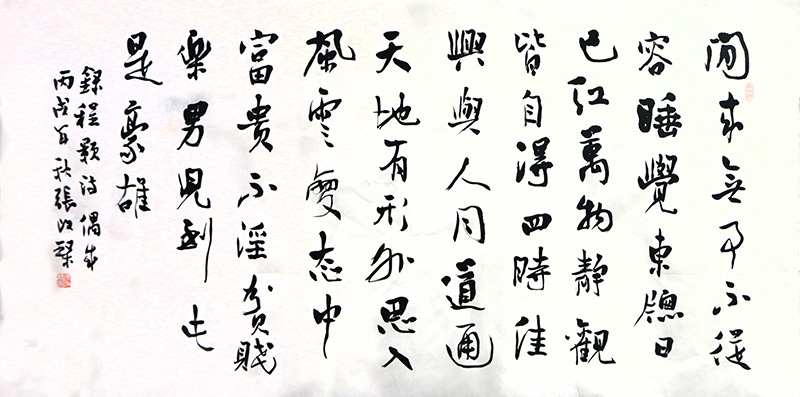 閒來無事不從
容睡覺東牕日
已紅萬物靜觀
皆自得四時佳
興與人同道通
天地有形外思入
風雲變态中
富貴不淫貧賤
樂男兒到此
是豪雄
錄程顥詩偶成
丙戌年秋張改琴